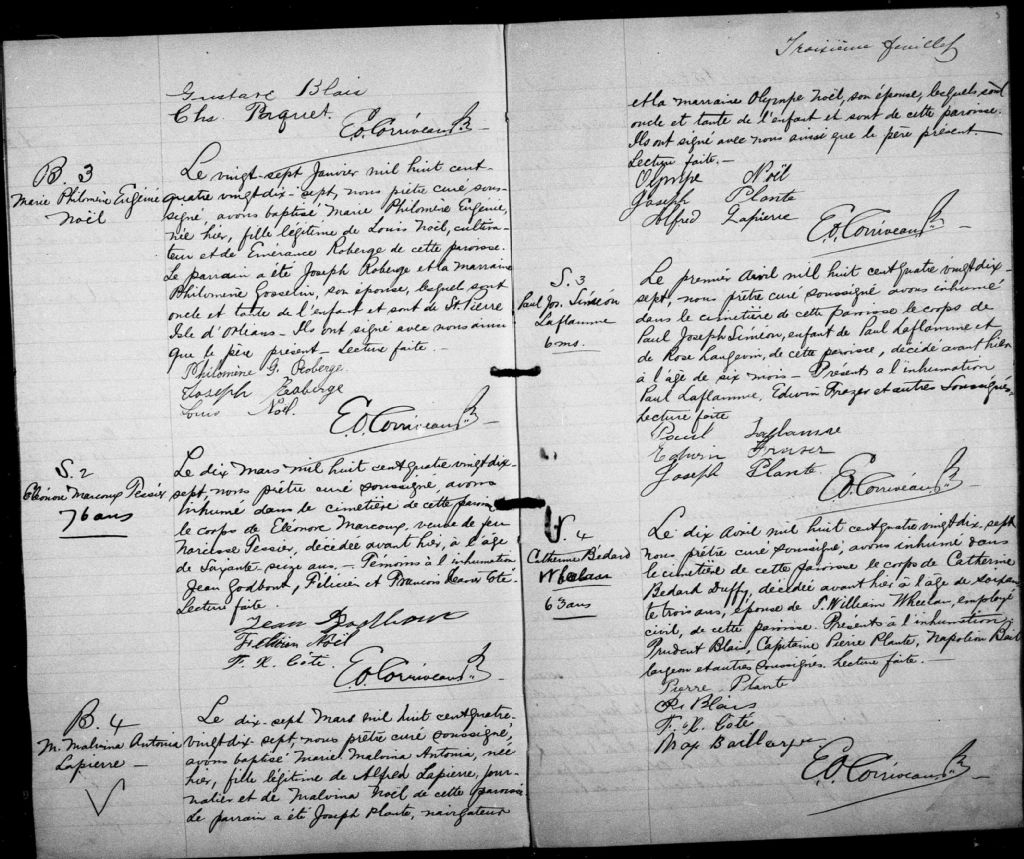 Gustave Blais
Chs. Paquet.
E.O. Corriveau Ptr
B 3
Marie Philomène Eugénie
Noël
Le vingt-sept Janvier mil huit cent-
quatre vingt dix-sept, nous prêtre curé sous-
signé, avons baptisé Marie Philomène Eugénie,
née hier, fille légitime de Louis Noël, cultiva-
teur et de Emérance Roberge de cette paroisse.
Le parrain a été Joseph Roberge et la marraine
Philomène Gosselin, son épouse, lesquels sont
oncle et tante de l'enfant et sont de St. Pierre
Isle d'Orléans - Ils ont signé avec nous ainsi
que le père présent - Lecture faite. -
Philomène G. Roberge
Joseph Roberge
Louis Noël
E.O. Corriveau Ptr
S. 2
Eléonore Marcoux Tessier
76 ans
Le dix Mars mil huit cent quatre vingt dix-
sept, nous prêtre curé soussigné, avons
inhumé dans le cimetière de cette paroisse
le corps de Eléonore Marcoux, veuve de feu
Narcisse Tessier, décédée avant hier, à l'âge
de Soixante seize ans. - Temoins à l'inhumation
Jean Godbout, Félicien et François Xavier Côté.
Lecture faite
Jean Godbout
Félicien Noël
F. X. Côté
E.O. Corriveau Ptr
B. 4
M. Malvina Antonia
Lapierre -
Le dix-sept Mars mil huit cent quatre-
vingt dix-sept, nous prêtre curé soussigné,
avons baptisé Marie Malvina Antonia, née
hier, fille légitime de Alfred Lapierre, jour-
nalier et de Malvina Noël de cette paroisse
Le parrain a été Joseph Plante, navigateur
Troixième feuillet
et la marraine Olympe Noël, son épouse, lesquels sont
oncle et tante de l'enfant et sont de cette paroisse.
Ils ont signé avec nous ainsi que le père présent. -
Lecture faite. -
Olympe Noël
Joseph Plante
Alfred Lapierre
E.O. Corriveau Ptr
S. 3
Paul Jos. Siméon
Laflamme
6 ms.
Le premier Avril mil huit cent quatre vingt dix-
sept, nous prêtre curé soussigné avons inhumé
dans le cimetière de cette paroisse le corps de
Paul Joseph Siméon, enfant de Paul Laflamme et
de Rose Langevin, de cette paroisse, décédé avant hier
à l'âge de six mois - Présent à l'inhumation
Paul Laflamme, Edwin Frazer et autres Soussignés.
Lecture faite
Paul Laflamme
Edwin Fraser
Joseph Plante
E.O. Corriveau Ptr
S. 4
Catherine Bedard
Wheelan
63 ans
Le dix Avril mil huit cent quatre vingt dix-sept
nous prêtre curé soussigné, avons inhumé dans
le cimetière de cette paroisse le corps de Catherine
Bedard Duffy, décédée avant hier à l'âge de soixan
te trois ans, épouse de S. William Wheelan, employé
civil, de cette paroisse. Présents à l'inhumation,
Prudent Blais, Capitaine Pierre Plante, Napoléon Bail
largeon et autres soussignés. Lecture faite. -
Pierre Plante
P. Blais
F. X. Côté
Max Baillargeon
E.O. Corriveau Ptr